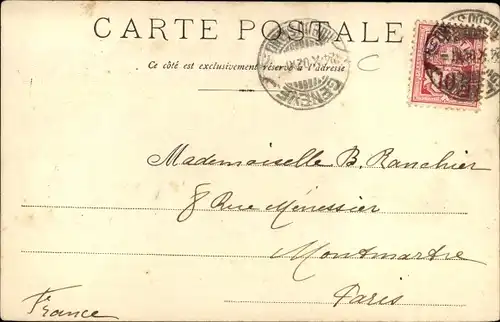 CARTE POSTALE
Ce côté est exclusivement réservé à l'adresse
GENÈVE
C
10
Mademoiselle B. Ranchier
8 Rue Ménessier
Montmartre
Paris
France